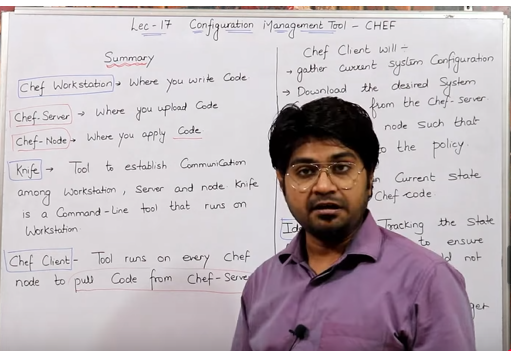 Lec-17 Configuration Management Tool - CHEF
Summary
Chef Workstation → Where you write Code
Chef-Server → Where you upload Code
Chef-Node → Where you apply Code
Knife → Tool to establish Communication
among Workstation, Server and node Knife
is a Command-Line tool that runs on
Workstation
Chef Client - Tool runs on every chef
node to pull Code from Chef-Serve
Chef Client will -
→ gather current system Configuration
→ Download the desired System
from the Chef-server
node such that
to the policy.
Current State
Chef-code
Id
Tracking the State
to ensure
not
ger